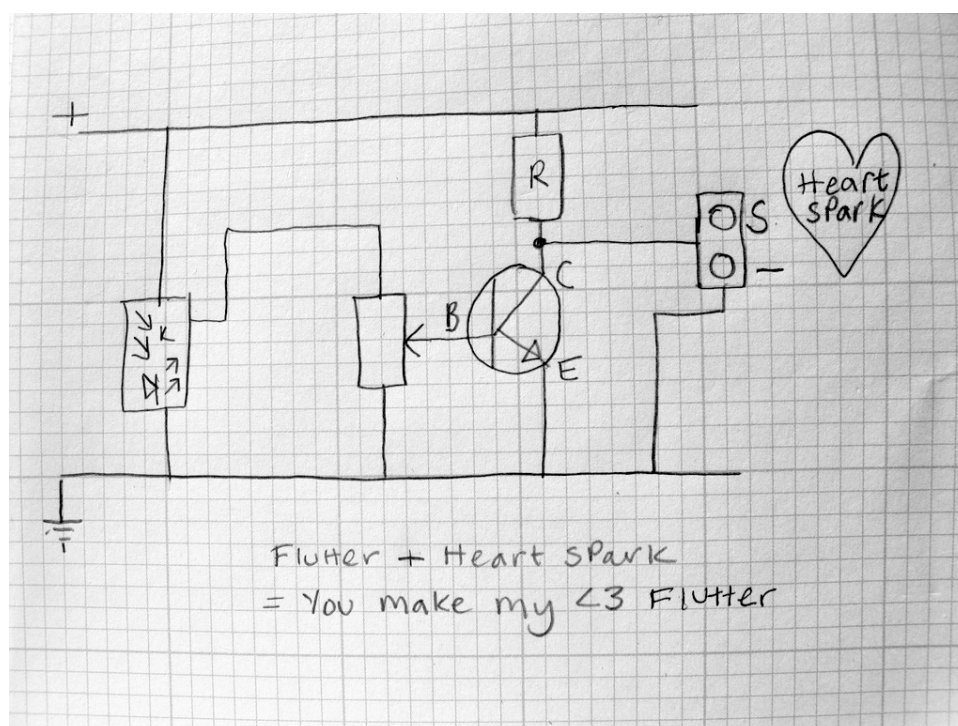 +
R
Heart
Spark
S
C
B
-
E
Flutter + Heart Spark
= You make my <3 Flutter